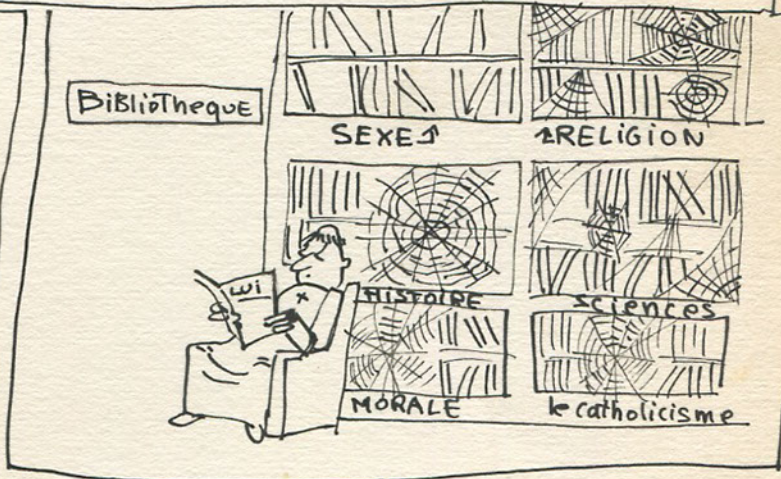 BiBLioTheque
SEXE
RELIGION
HISTOIRE
sciences
MORALE
le catholicisme
Lui